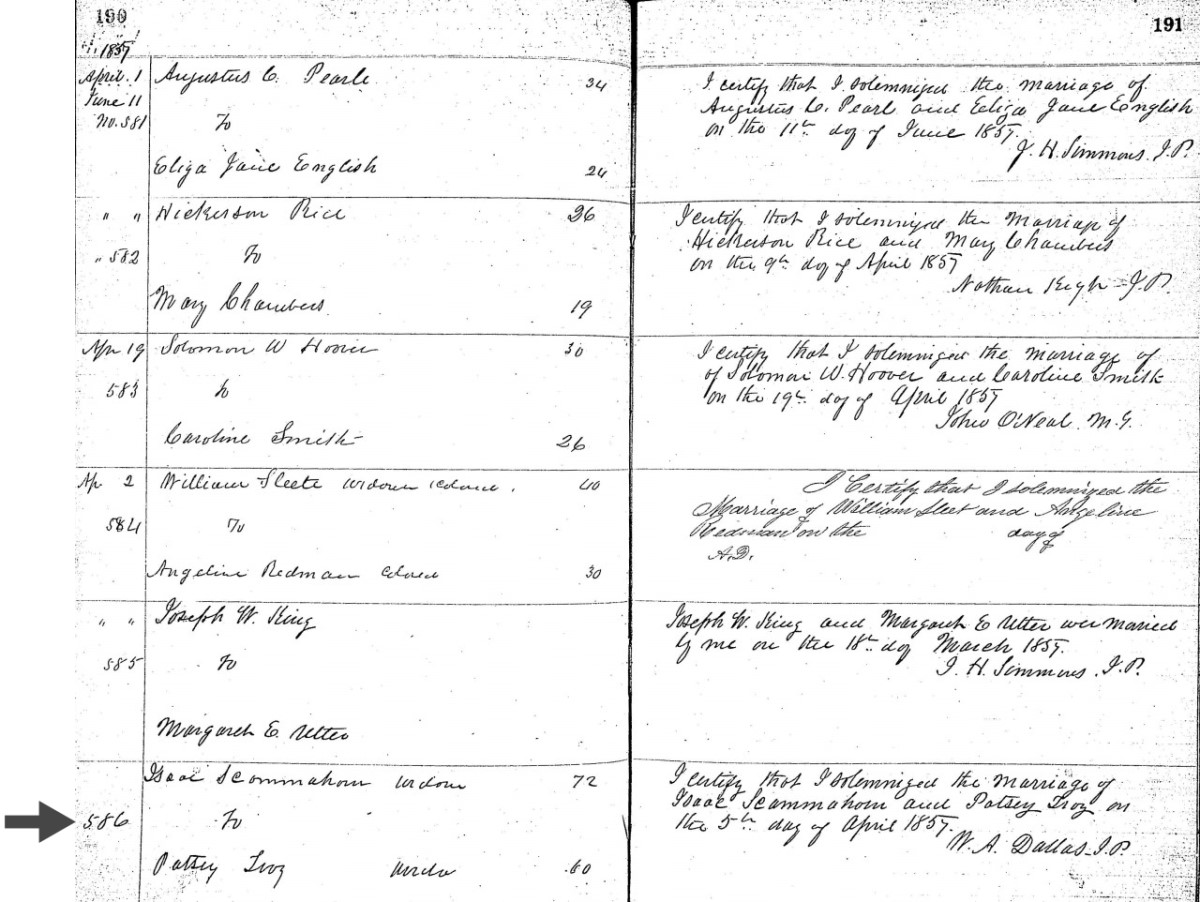 190
1857
April. 1 Augustus C. Pearl 34
June 11
No. 581 To
Eliza Jane English 24
" " Hickerson Rice 26
" 582 To
Mary Chambers 19
Apr 19 Solomon W Hoover 30
583 to
Caroline Smith 26
Ap 2 William Sleete 40
584 To
Angeline Redman Colored 30
" " Joseph W. King
585 To
Margaret E. Utter
Isaac Scammahorn 72
586 To
Patsey 60
191
I certify that I solemnized the marriage of
Augustus C. Pearl and Eliza Jane English
on the 11th day of June 1857.
J. H. Simmons. J.P.
I certify that I solemnized the Marriage of
Hickerson Rice and Mary Chambers
on the 9th day of April 1857
Nathan J.P.
I certify that I solemnized the marriage of
of Solomon W. Hoover and Caroline Smith
on the 19th day of April 1857
John O'Neal M.G.
I Certify that I solemnized the
Marriage of William Sleet and Angeline
Redman on the day of
A.D.
Joseph W. King and Margaret E Utter wer married
by me on the 18th day March 1857.
J. H. Simmons. J.P.
I certify that I solemnized the marriage of
Isaac Scammahorn and Patsey on
the 5th day of April 1857.
W. A. Dallas J.P.